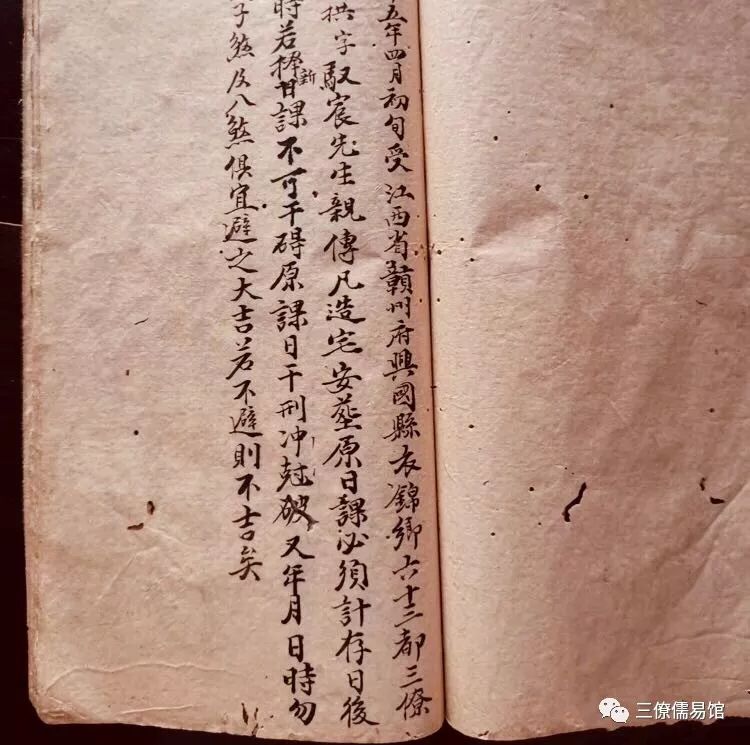 五年四月初旬受江西省贛州府興國縣衣錦鄉六十三都三僚
拱字馭宸先生親傳凡造宅安塟原日課必須計存日後
時若擇新日課不可干碍原課日干刑冲尅破又年月日時勿
子煞及八煞俱宜避之大吉若不避則不吉矣
三僚儒易馆